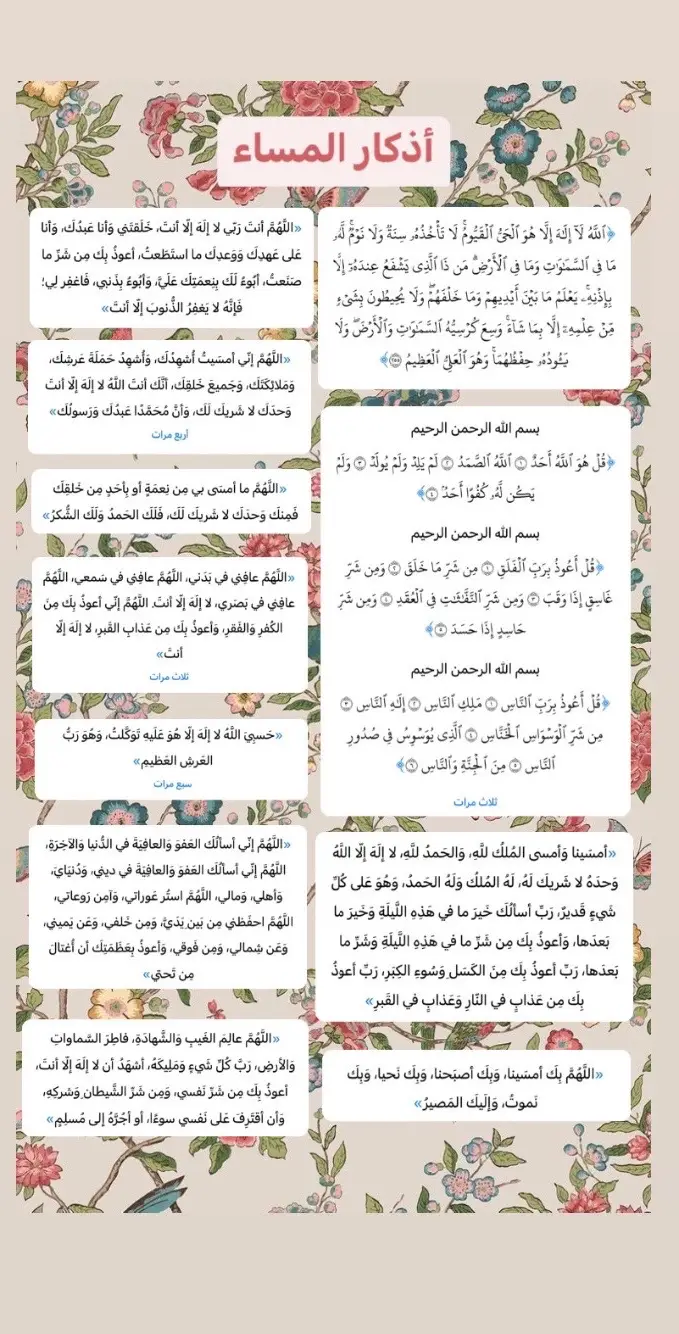 أذكار المساء
﴿ٱللَّهُ لَآ إِلَـٰهَ إِلَّا هُوَ ٱلۡحَيُّ ٱلۡقَيُّومُۚ لَا تَأۡخُذُهُۥ سِنَةٞ وَلَا نَوۡمٞۚ لَّهُۥ
مَا فِي ٱلسَّمَـٰوَٰتِ وَمَا فِي ٱلۡأَرۡضِۗ مَن ذَا ٱلَّذِي يَشۡفَعُ عِندَهُۥٓ إِلَّا
بِإِذۡنِهِۦۚ يَعۡلَمُ مَا بَيۡنَ أَيۡدِيهِمۡ وَمَا خَلۡفَهُمۡۖ وَلَا يُحِيطُونَ بِشَيۡءٖ
مِّنۡ عِلۡمِهِۦٓ إِلَّا بِمَا شَآءَۚ وَسِعَ كُرۡسِيُّهُ ٱلسَّمَـٰوَٰتِ وَٱلۡأَرۡضَۖ وَلَا
يَـُٔودُهُۥ حِفۡظُهُمَاۚ وَهُوَ ٱلۡعَلِيُّ ٱلۡعَظِيمُ ۝٢٥٥﴾
بسم الله الرحمن الرحيم
﴿قُلۡ هُوَ ٱللَّهُ أَحَدٌ ۝١ ٱللَّهُ ٱلصَّمَدُ ۝٢ لَمۡ يَلِدۡ وَلَمۡ يُولَدۡ ۝٣ وَلَمۡ
يَكُن لَّهُۥ كُفُوًا أَحَدُۢ ۝٤﴾
بسم الله الرحمن الرحيم
﴿قُلۡ أَعُوذُ بِرَبِّ ٱلۡفَلَقِ ۝١ مِن شَرِّ مَا خَلَقَ ۝٢ وَمِن شَرِّ
غَاسِقٍ إِذَا وَقَبَ ۝٣ وَمِن شَرِّ ٱلنَّفَّـٰثَـٰتِ فِي ٱلۡعُقَدِ ۝٤ وَمِن شَرِّ
حَاسِدٍ إِذَا حَسَدَ ۝٥﴾
بسم الله الرحمن الرحيم
﴿قُلۡ أَعُوذُ بِرَبِّ ٱلنَّاسِ ۝١ مَلِكِ ٱلنَّاسِ ۝٢ إِلَـٰهِ ٱلنَّاسِ ۝٣
مِن شَرِّ ٱلۡوَسۡوَاسِ ٱلۡخَنَّاسِ ۝٤ ٱلَّذِي يُوَسۡوِسُ فِي صُدُورِ
ٱلنَّاسِ ۝٥ مِنَ ٱلۡجِنَّةِ وَٱلنَّاسِ ۝٦﴾
ثلاث مرات
«أمسَينا وَأمسى المُلكُ للَّهِ، وَالحَمدُ للَّهِ، لا إلَهَ إلّا اللَّهُ
وَحدَهُ لا شَريكَ لَهُ، لَهُ المُلكُ وَلَهُ الحَمدُ، وَهُوَ عَلى كُلِّ
شَيءٍ قَديرٌ، رَبِّ أسألُكَ خَيرَ ما في هَذِهِ اللَّيلَةِ وَخَيرَ ما
بَعدَها، وَأعوذُ بِكَ مِن شَرِّ ما في هَذِهِ اللَّيلَةِ وَشَرِّ ما
بَعدَها، رَبِّ أعوذُ بِكَ مِنَ الكَسَلِ وَسُوءِ الكِبَرِ، رَبِّ أعوذُ
بِكَ مِن عَذابٍ في النّارِ وَعَذابٍ في القَبرِ»
«اللَّهُمَّ بِكَ أمسَينا، وَبِكَ أصبَحنا، وَبِكَ نَحيا، وَبِكَ
نَموتُ، وَإلَيكَ المَصيرُ»
«اللَّهُمَّ أنتَ رَبّي لا إلَهَ إلّا أنتَ، خَلَقتَني وَأنا عَبدُكَ، وَأنا
عَلى عَهدِكَ وَوَعدِكَ ما استَطَعتُ، أعوذُ بِكَ مِن شَرِّ ما
صَنَعتُ، أبُوءُ لَكَ بِنِعمَتِكَ عَلَيَّ، وَأبُوءُ بِذَنبي، فَاغفِر لي؛
فَإنَّهُ لا يَغفِرُ الذُّنوبَ إلّا أنتَ»
«اللَّهُمَّ إنّي أمسَيتُ أُشهِدُكَ، وَأُشهِدُ حَمَلَةَ عَرشِكَ،
وَمَلائِكَتَكَ، وَجَميعَ خَلقِكَ، أنَّكَ أنتَ اللَّهُ لا إلَهَ إلّا أنتَ
وَحدَكَ لا شَريكَ لَكَ، وَأنَّ مُحَمَّدًا عَبدُكَ وَرَسولُكَ»
أربع مرات
«اللَّهُمَّ ما أمسَى بي مِن نِعمَةٍ أو بِأحَدٍ مِن خَلقِكَ
فَمِنكَ وَحدَكَ لا شَريكَ لَكَ، فَلَكَ الحَمدُ وَلَكَ الشُّكرُ»
«اللَّهُمَّ عافِني في بَدَني، اللَّهُمَّ عافِني في سَمعي، اللَّهُمَّ
عافِني في بَصَري، لا إلَهَ إلّا أنتَ. اللَّهُمَّ إنّي أعوذُ بِكَ مِنَ
الكُفرِ وَالفَقرِ، وَأعوذُ بِكَ مِن عَذابِ القَبرِ، لا إلَهَ إلّا
أنتَ»
ثلاث مرات
«حَسبِيَ اللَّهُ لا إلَهَ إلّا هُوَ عَلَيهِ تَوَكَّلتُ، وَهُوَ رَبُّ
العَرشِ العَظيمِ»
سبع مرات
«اللَّهُمَّ إنّي أسألُكَ العَفوَ وَالعافِيَةَ في الدُّنيا وَالآخِرَةِ،
اللَّهُمَّ إنّي أسألُكَ العَفوَ وَالعافِيَةَ في ديني، وَدُنيَايَ،
وَأهلي، وَمالي، اللَّهُمَّ استُر عَوراتي، وَآمِن رَوعاتي،
اللَّهُمَّ احفَظني مِن بَينِ يَدَيَّ، وَمِن خَلفي، وَعَن يَميني،
وَعَن شِمالي، وَمِن فَوقي، وَأعوذُ بِعَظَمَتِكَ أن أُغتالَ
مِن تَحتي»
«اللَّهُمَّ عالِمَ الغَيبِ وَالشَّهادَةِ، فاطِرَ السَّماواتِ
وَالأرضِ، رَبَّ كُلِّ شَيءٍ وَمَليكَهُ، أشهَدُ أن لا إلَهَ إلّا أنتَ،
أعوذُ بِكَ مِن شَرِّ نَفسي، وَمِن شَرِّ الشَّيطانِ وَشركِهِ،
وَأن أقتَرِفَ عَلى نَفسي سوءًا، أو أجُرَّهُ إلى مُسلِمٍ»